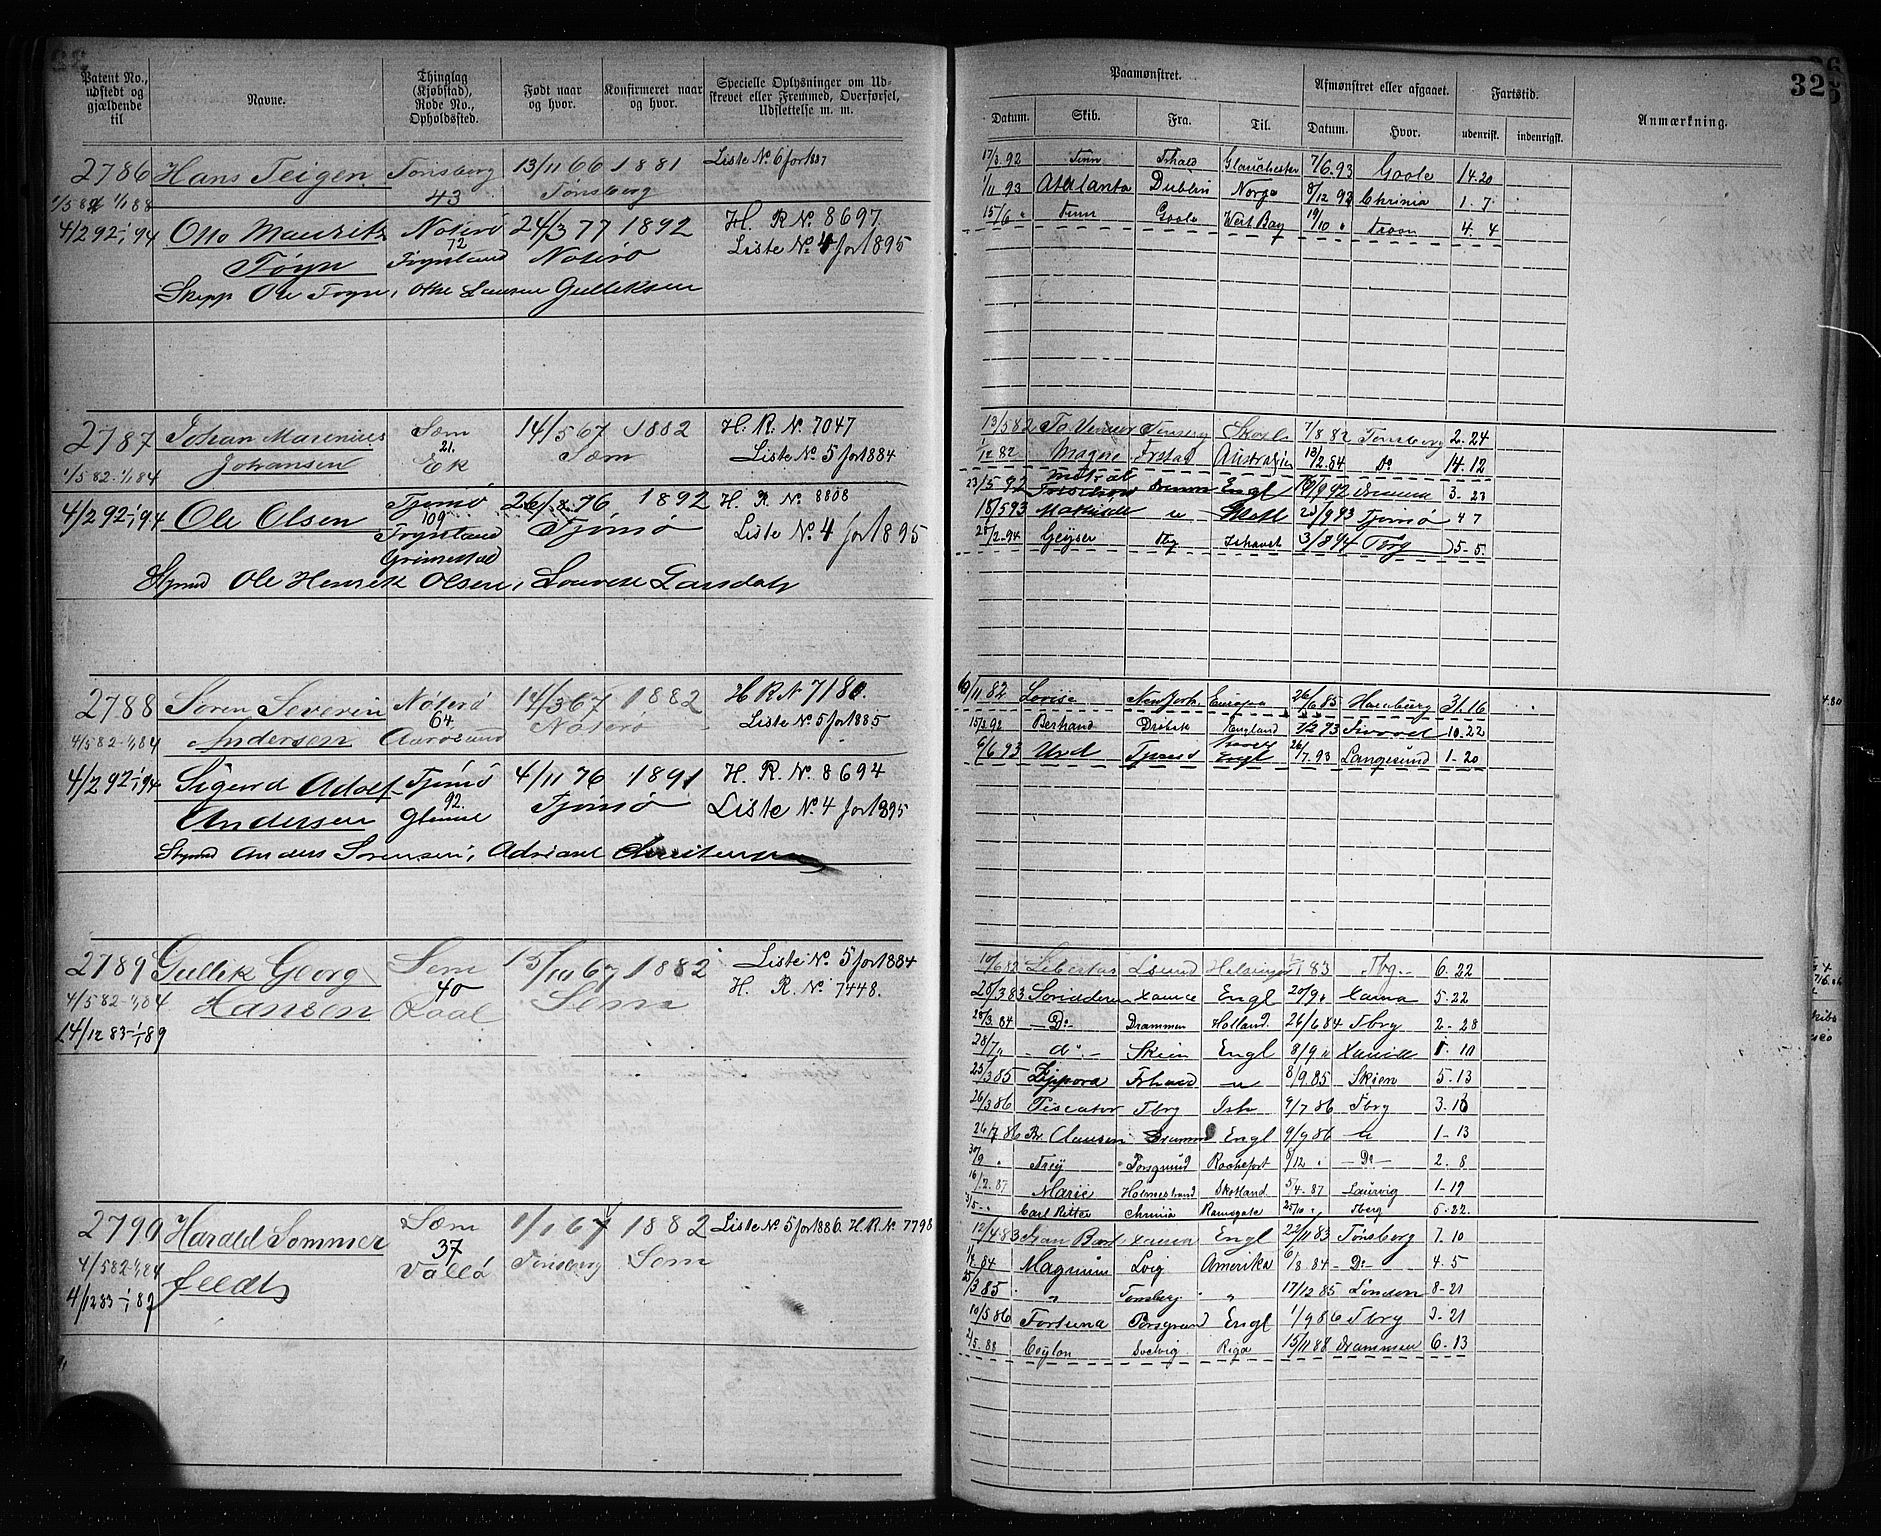 Patent No., udstedt og gjældende til
Navne.
Thinglag (Kjøbstad), Rode No., Opholdssted.
Født naar og hvor.
Konfirmeret naar og hvor.
Specielle Oplysninger om Udskrevet eller Fremmed, Overførsel, Udslettelse m. m.
2786 Hans Teigen Tønsberg 13/11 66 1881 Liste No 6 for 1887
43 Tønsberg
4/2 92-1/1 94 Otto Mauritz Nøterø 24/3 77 1892 H. R. No. 8697
Føyn 72 Føynland Nøterø Liste No. 4 for 1895
Skipp Ole Føyn, Lausen Gulliksen
2787 Johan Marenius Sæm 14/5 67 1882 H. R. N. 7047
1/5 82-1/1 84 Johansen 21. Ek Sæm Liste No. 5 for 1884
4/2 92-1/1 94 Ole Olsen Tjømø 26/2 76 1892 H. R. No. 8808
109 Føynland Tjømø Liste No. 4 for 1895
Grimestad
Styrmd Ole Henrik Olsen,
2788 Søren Severin Nøterø 14/3 67 1882 H R N 7180.
4/5 82-1/1 84 Andersen 64 Aarøsund Nøterø Liste No. 5 for 1885
4/2 92-1/1 94 Sigurd Adolf Tjømø 4/11 76 1891 H. R. No. 8694
Andersen 92. Glomse Tjømø Liste No. 4 for 1895
Styrmd Anders Sørensen,
2789 Gullik Georg Sem 15/10 67 1882 Liste No. 5 for 1884
4/5 82-1/1 84 Hansen 40 Sem H. R. No. 7448.
14/12 83-1/1 89
2790 Harald Sommer Sæm 1/1 67 1882 Liste No 5 for 1886. H. R. No 7798
4/5 82-1/1 84 feldt 37 Vallø Tønsberg Sem
4/12 83-1/1 87
326
Paamønstret.
Afmønstret eller afgaaet.
Fartstid.
Anmærkning.
Datum. Skib. Fra. Til. Datum. Hvor. udenrisk. indenrigsk.
17/3 92 Finn Frhald Glouchester 7/6.93 Goole 14.20
1/11 93 Atalanta Dublin Norge 8/12 93 Chrinia 1. 7
15/6 " Finn Goole West Bay 19/10 " 4. 4
13/5 82 Tønsberg 7/8 82 Tønsberg 2-24
1/12 82 Frstad Australien 13/2.84 Do 14.12
23/5 92 Dramm Engl 19/9 92 Dramm 3-23
18/5 93 Mathilde " 25/9 93 Tjømø 4 7
25/2-94 Geyser Tbg Ishavet 3/8 94 Tbrg 5-5.
10/11 82 Lovise New York Europa 26/6 85 Hamburg 31.16
15/3.92 Drøbak England 10.22
6/6 93 Urd 26/7.93 Langesund 1-20
10/6 82 Libertas Lsund Helsingør 83 Tbg- 6.22
20/3 83 Engl 20/9 " 5.22
25/3.84 Do- Drammen Holland. 26/6 84 Tbrg 2-28
28/7 " do.- Skien Engl 8/9 " 1. 10
23/3 85 Zippora Frhald " 8/9.85 Skien 5.13
26/3 86 Piscator Tbrg Ish 9/7 86 Tbrg 3.13
24/7 86 Br. Clausen Dramm Engl 9/9 86 " 1-13
30/9 " Frey Porsgrund Rochefort 8/12 " -Do- 2.8
16/2.87 Marie Holmestrand Skotland 5/4.87 Laurvig 1-19
31/5 " Carl Ritter Chrinia Ramsgate 25/10 " Tberg 5.22
12/4 83 Engl 22/11 83 Tønsberg 7.10
84 Magnum Lvig Amerika 6/8 84 Do 4.5
25/3 85 " Tønsberg " 17/12 85 London 8-21
10/5 86 Fortuna Porsgrund Engl 1/9 86 Tbrg 3-21
2/5.88 Ceylon Svelvig Riga 15/11 88 Drammen 6-13